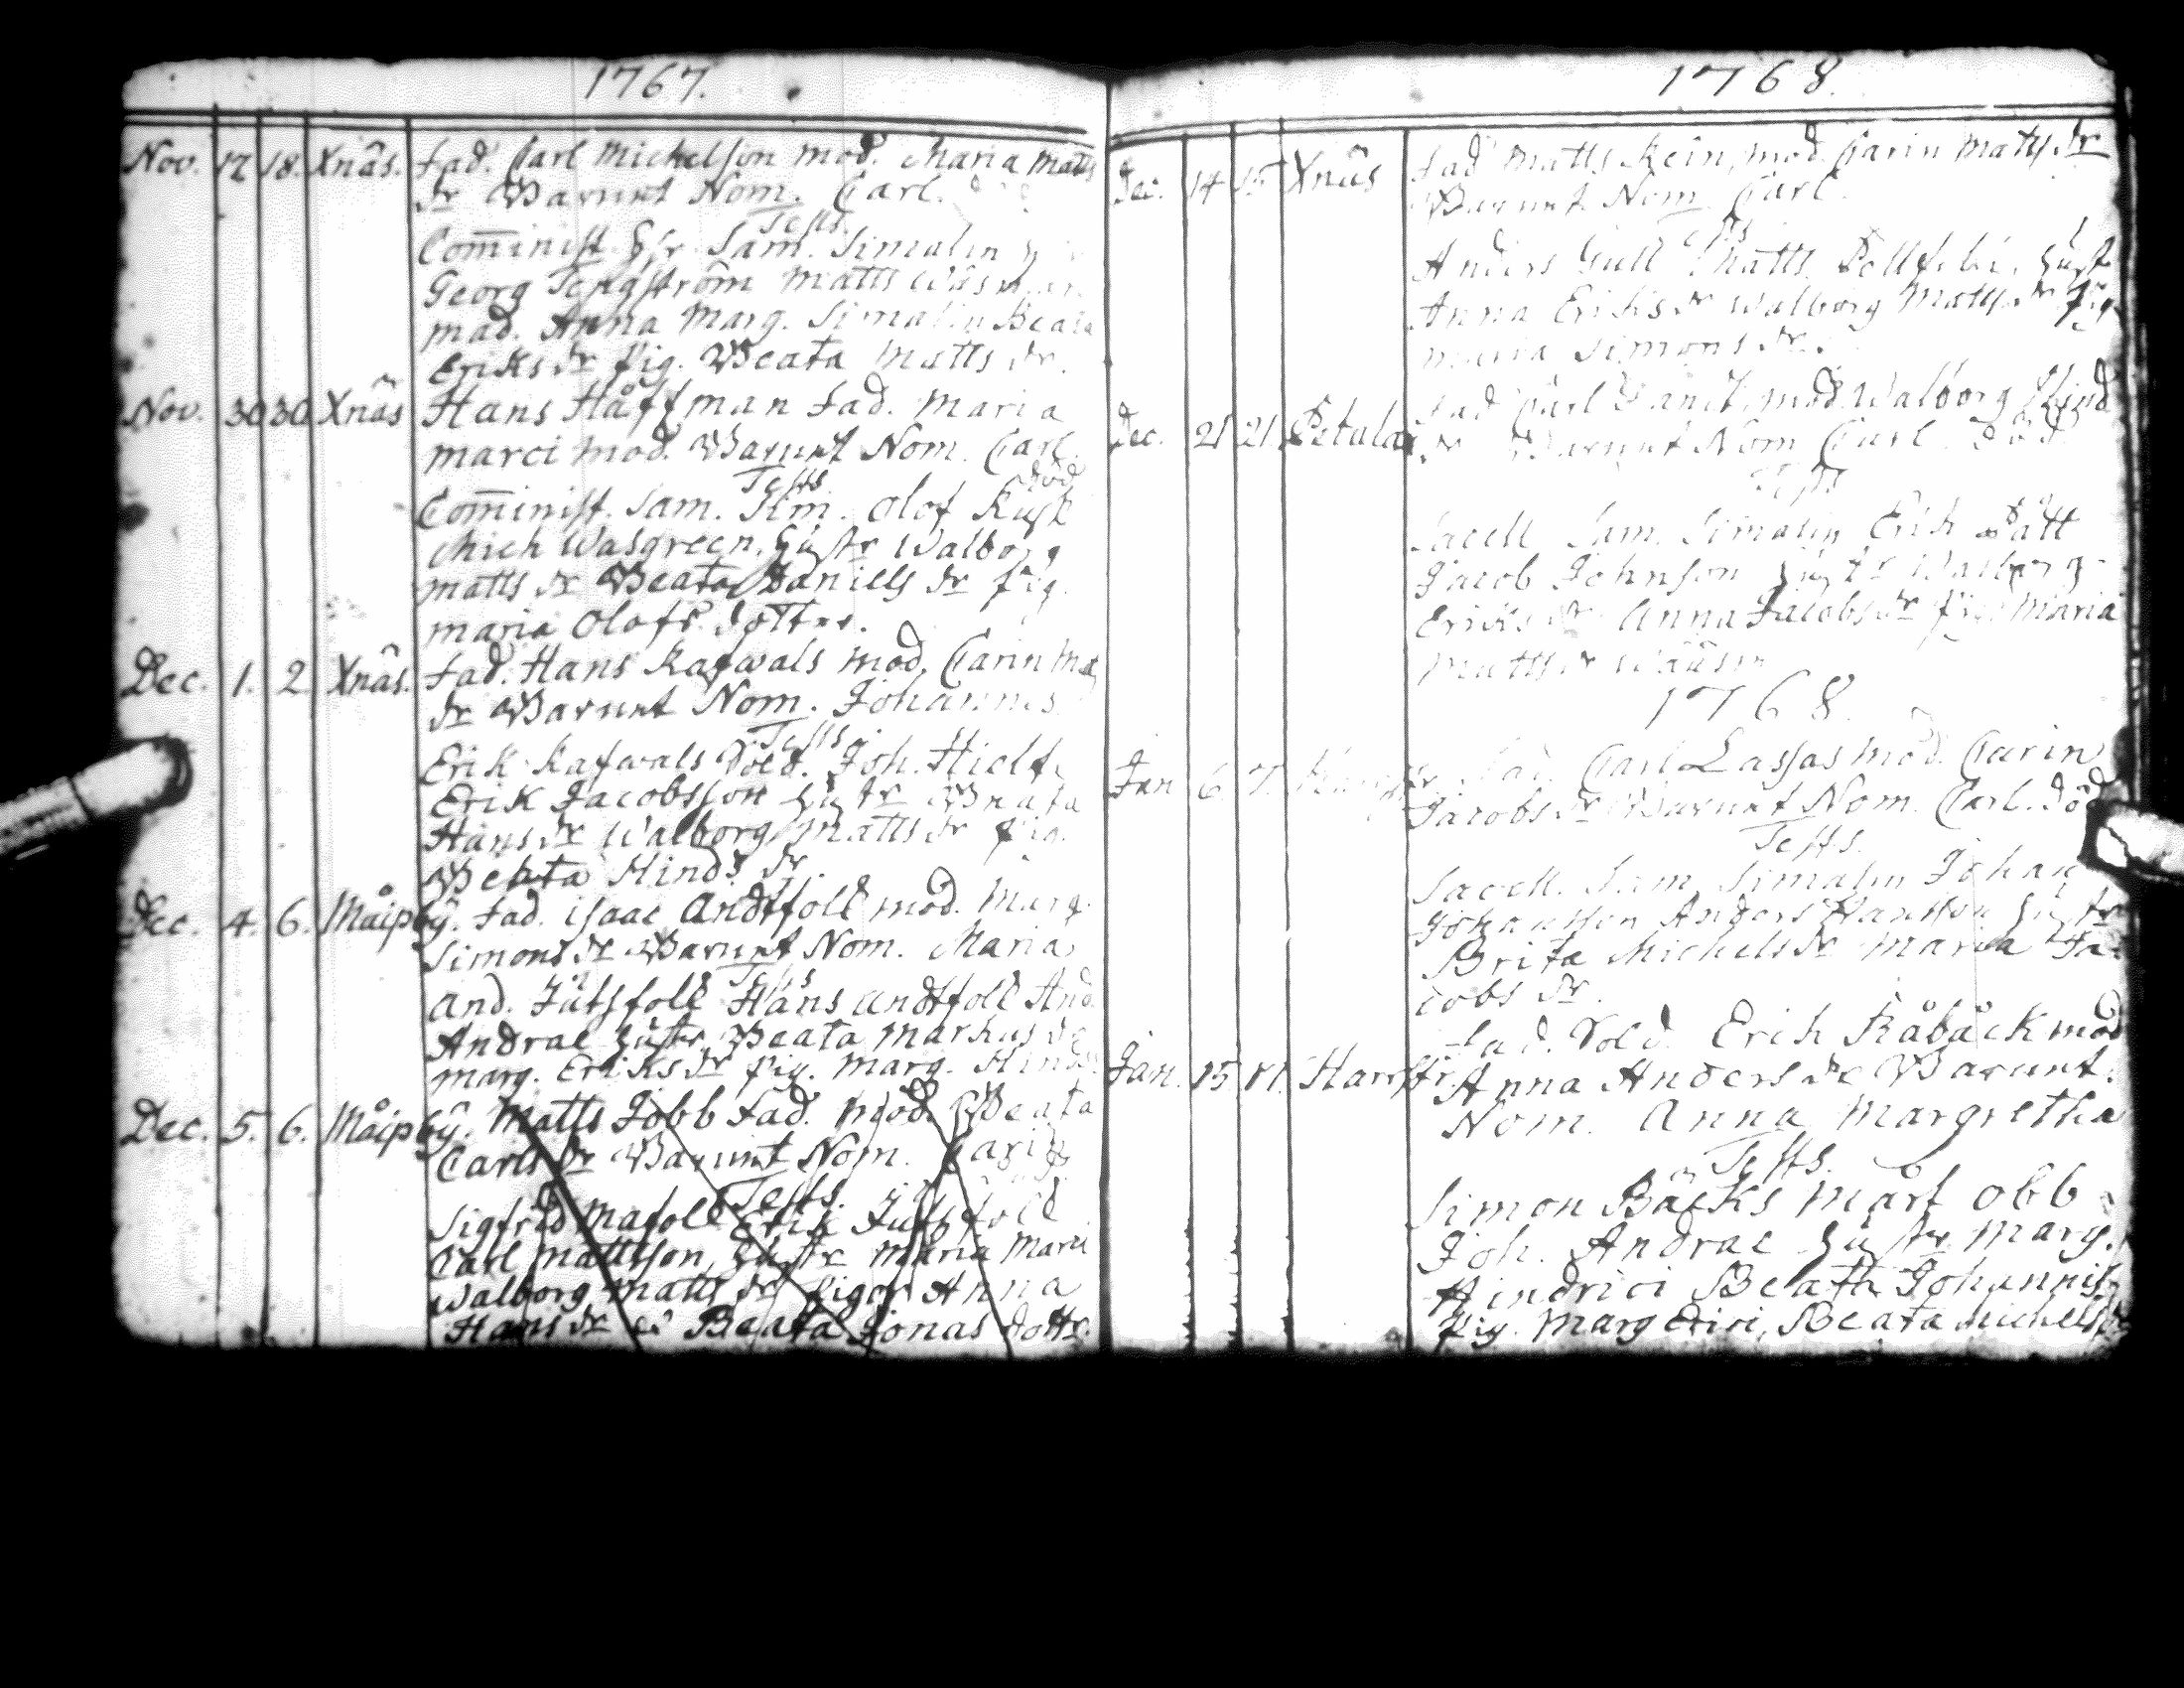 1767.
Nov. 17 18. Xnäs. fad. Carl Michelsson mod. Maria Matts
dr Barnet Nom. Carl.
Tests.
Com̄inist. H:r Sam. Simalin
Georg Tengström Matts Wäsman
mad. Anna Marg. Simalin Beata
Eriks dr Pig. Beata Matts dr.
Nov. 30 30 Xnäs Hans Håffman fad. Maria
Marci mod. Barnet Nom. Carl.
död
Tests.
Com̄inist. Sam. Sim. Olof Kusk
Mich Wasgreen. Hustr Walborg
Matts dr Beata Daniells dr Pig.
Maria Olofs dotter.
Dec. 1. 2 Xnäs. fad. Hans Kafwals mod. Carin Mats
dr Barnet Nom. Johannes
Tests.
Erik Kafwals Sold. Joh. Hielt
Erik Jacobsson Hustr Beata
Hans dr Walborg Matts dr Pig.
Beata Hinds dr.
Dec. 4. 6. Måipby. fad. Isaac Andtfolk mod. Marg.
Simons dr Barnet Nom. Maria
Tests
And. Jutsfolk Hans Andtfolk And.
Andrae Hustr. Beata Markus dr
Marg. Eriks dr Pig. Marg. Hinds
Dec. 5. 6. Måipby. Matts Jobb fad. mod. Beata
Carls dr Barnet Nom. Carin
Tests.
Sigfrid Mafolk Erik Jutsfolk
Carl Mattsson, Hustr Maria Marci
Walborg Matts dr Pigor Anna
Hans dr Beata Jonas dottr.
1768.
Dec. 14 15 Xnäs fad Matts Rein, mod. Carin Matts dr
Barnet Nom Carl
Tests
Anders Gull Matts Hustr
Anna Eriks dr Walborg Matts dr Pig
Maria Simons dr.
Dec. 21 21. Petalax fad Carl mod. Walborg Hind
dr Barnet Nom Carl död
Tests
Sacell Sam. Simalin Erik Bått
Jacob Johnson Hustr Walborg
Eriks dr Anna Jacobs dr Pig. Maria
Matts dr
1768.
Jan 6 7. fad. Carl Lassas mod. Carin
Jacobs dr Barnet Nom. Carl. död
Tests.
Sacell. Sam. Simalin Johan
Johansson Anders Hansson Hustr
Brita Michels dr Maria Ja-
cobs dr.
fad. Sold. Erik Råback mod
Jan. 15 17. Harrstr. Anna Anders dr Barnet.
Nom. Anna Margretha
Tests.
Simon Bäcks Mårt Obb
Joh. Andrae Hustr Marg.
Hindrici Beata Johannis
Pig. Marg Erici, Beata Michells dr